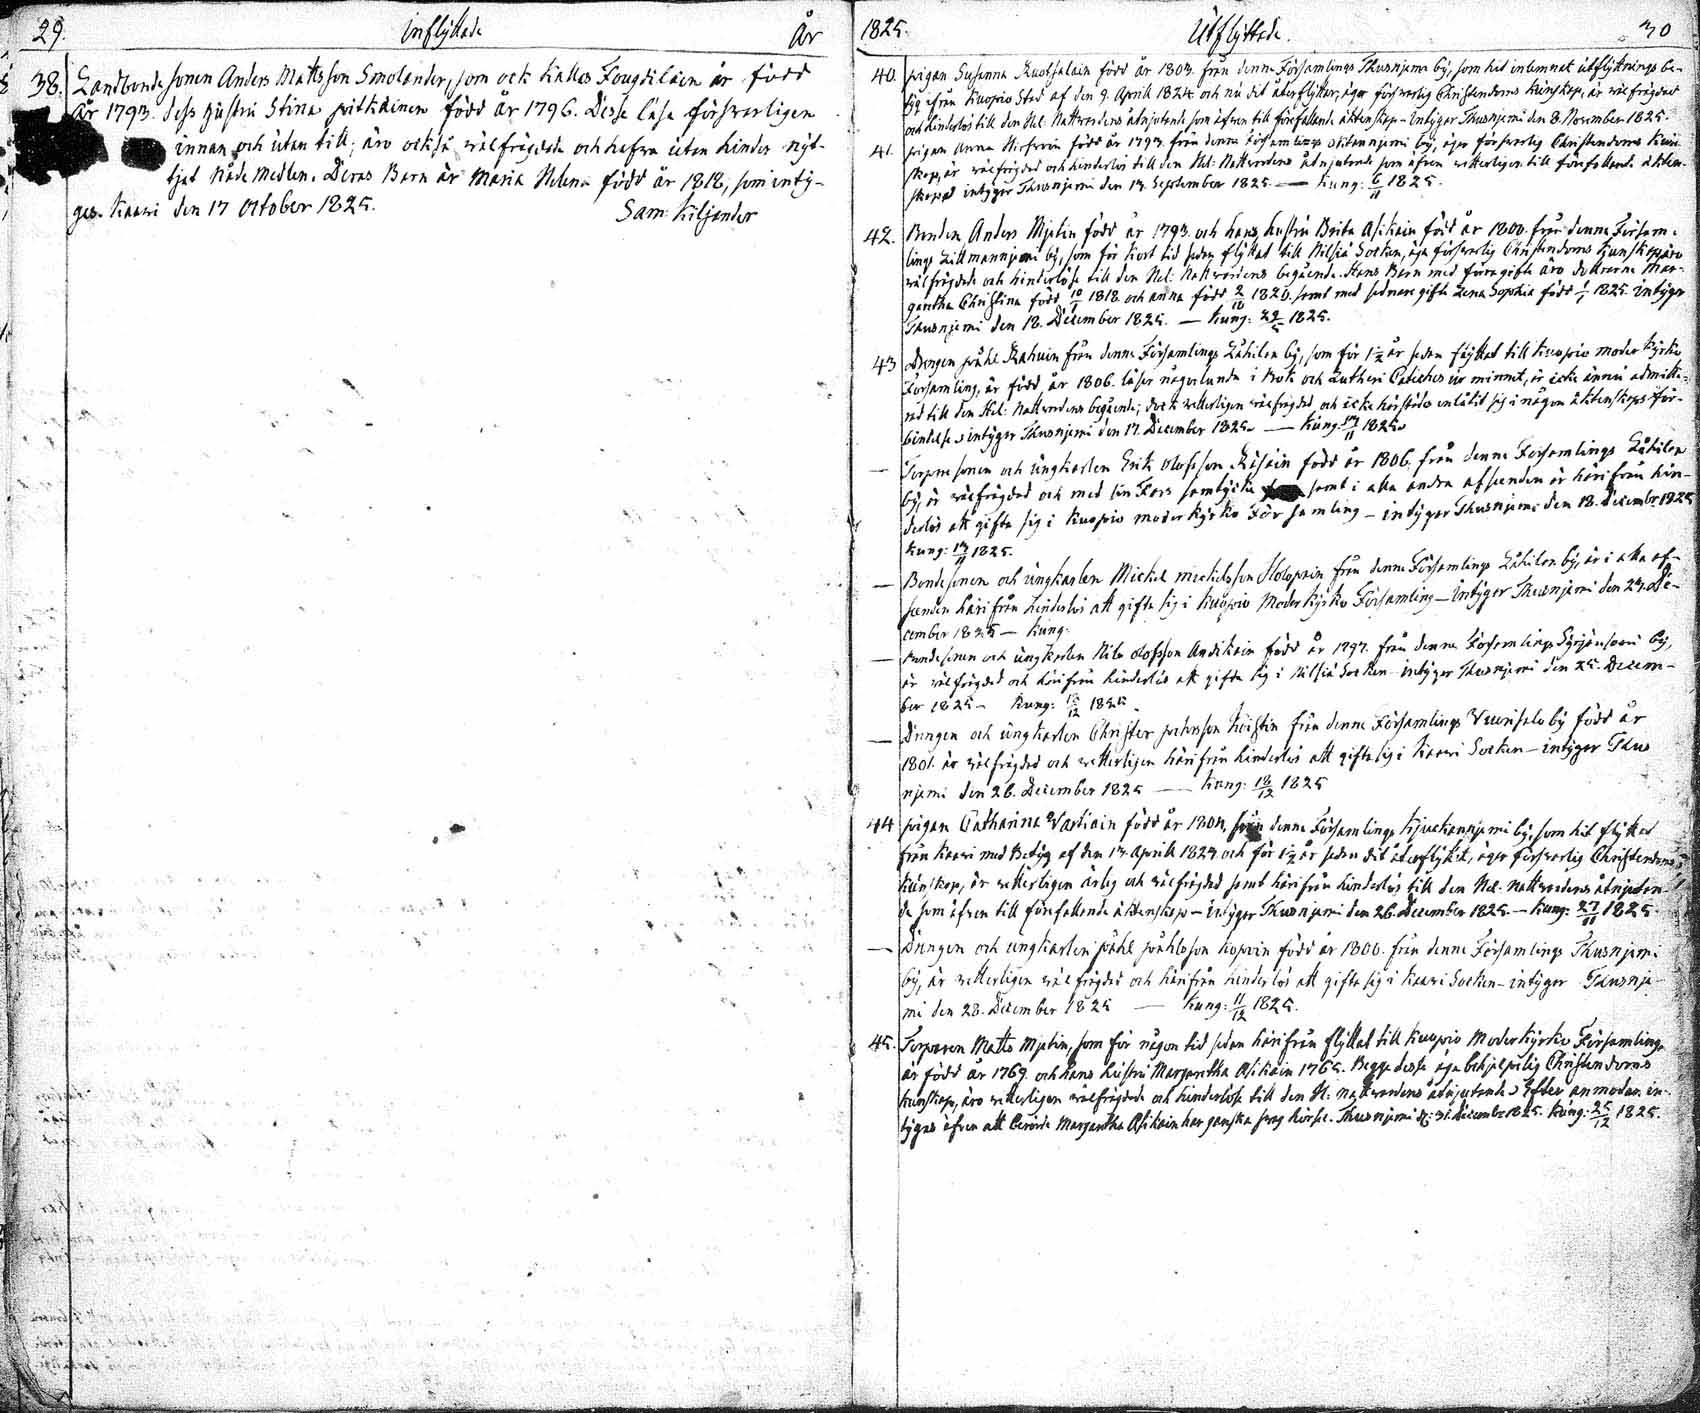 29. Inflyttade År
38. Landbonde sonen Anders Mattsson Smolander, som ock kallas Fougdilain är född
år 1793. dess hustru Stina pitkäinen född år 1796. Desse läsa försvarligen
innan och utan till; äro också välfrägdade och hafva utan hinder nyt-
tjat Nåde medlen. Deras Barn är Maria Helena född år 1818, som inty-
gas. Kaavi den 17 October 1825. Sam: Kiljander
1825. Utflyttade. 30
40. pigan Susanna Ruotsalain född år 1803. från denne Församlings Thusnjemi by, som hit inlemnat utflyttnings be-
tyg ifrån Kuopio Stad af den 9. Aprill 1824 och nu dit återflyttar; äger försvarlig Christendoms kunskap, är välfrägdad
och hinderlös till den Hel: Nattvardens åtnjutande som äfven till förefallande äktenskap – Intygar Thusnjemi den 8. November 1825.
41. pigan Anna född år 1793. från denne Församlings by, äger försvarlig Christendoms kun-
skap, är välfrägdad och hinderlös till den Hel: Nattvardens åtnjutande som äfven vetterligen till förefallande äkten-
skap intygar Thusnjemi den 13. September 1825. — Kung: 6/11 1825.
42. Bonden Anders Mjetin född år 1793. och hans hustru Brita Asikain född år 1800. från denne Försam-
lings Litmannjemi by, som för kort tid sedan flyttat till Nilsiä Socken, äga försvarlig Christendoms kunskap, äro
välfrägdade och hinderlöse till den Hel: Nattvardens begående. Hans Barn med förra gifte äro döttrarne Mar-
garetha Christina född 10/1 1818. och Anna född 2/10 1820. samt med sednare gifte Lena Sophia född 1/1 1825. intygar
Thusnjemi den 18. December 1825. — Kung: 29/5 1825.
43 Drengen påhl Rahuin från denne Församlings Lähilax by, som för 1 1/2 år sedan flyttat till Kuopio moder kyrko
Församling, är född år 1806. läser någorlunda i Bok och Lutheri Cateches ur minnet, är icke ännu admitte-
rad till den Hel: Nattvardens begående; dock vetterligen välfrägdad och icke härstädes inlåtit sig i någon äktenskaps för-
bindelse, intygar Thusnjemi den 17. December 1825. — Kung: 13/11 1825.
— Torparesonen och ungkarlen Erik Olofsson Räsäin född år 1806. från denne Församlings Lähilax
by, är välfrägdad och med sin Fars samtycke samt i alla andra afseenden är härifrån hin-
derlös att gifta sig i Kuopio moder kyrko Församling – intygar Thusnjemi den 18. December 1825
Kung: 13/11 1825.
— Bondesonen och ungkarlen Mickel Mickelsson Holopain från denne Församlings Lähilax by, är i alla af-
seenden härifrån hinderlös att gifta sig i Kuopio Moder kyrko Församling – Intygar Thusnjemi den 23. De-
cember 1825 – Kung:
— Bondesonen och ungkarlen Nils Olofsson Asikain född år 1797. från denne Församlings by,
är välfrägdad och härifrån hinderlös att gifta sig i Nilsiä Socken – intygar Thusnjemi den 25. Decem-
ber 1825 – Kung: 1825.
— Drengen och ungkarlen Christer Johnsson från denne Församlings Vuorisalo by född år
1801. är välfrägdad och vetterligen härifrån hinderlös att gifta sig i Kaavi Socken – intygar Thus
njemi den 26. December 1825 — Kung: 18/12 1825
44 pigan Catharina Vartiain född år 1804, från denne Församlings by, som hit flyttat
från Kaavi med Betyg af den 13. Aprill 1823 och för 1 1/2 år sedan dit återflyttat, äger försvarlig Christendoms
kunskap, är vetterligen ärlig och välfrägdad samt härifrån hinderlös till den Hel: nattvardens åtnjutan-
de som äfven till förefallande äktenskap – intygar Thusnjemi den 26. December 1825. – Kung: 27/11 1825.
— Drengen och ungkarlen påhl påhlsson Kopoin född år 1800. från denne Församlings Thusnjemi
by, är vetterligen välfrägdad och härifrån hinderlös att gifta sig i Kaavi Socken – intygar Thusnje-
mi den 28. December 1825 — Kung: 11/12 1825.
45. Torparen Matts Mjetin, som för någon tid sedan härifrån flyttat till Kuopio Moder kyrko Församling,
är född år 1769. och hans hustru Margaretha Asikain 1765. Begge desse äga behjelpelig Christendoms
kunskap, äro vetterligen välfrägdade och hinderlöse till den H: nattvardens åtnjutande. Efter anmodan in-
tygas äfven att berörde Margaretha Asikain har ganska svag hörsel. Thusnjemi d: 31. December 1825. Kung: 25/12 1825.